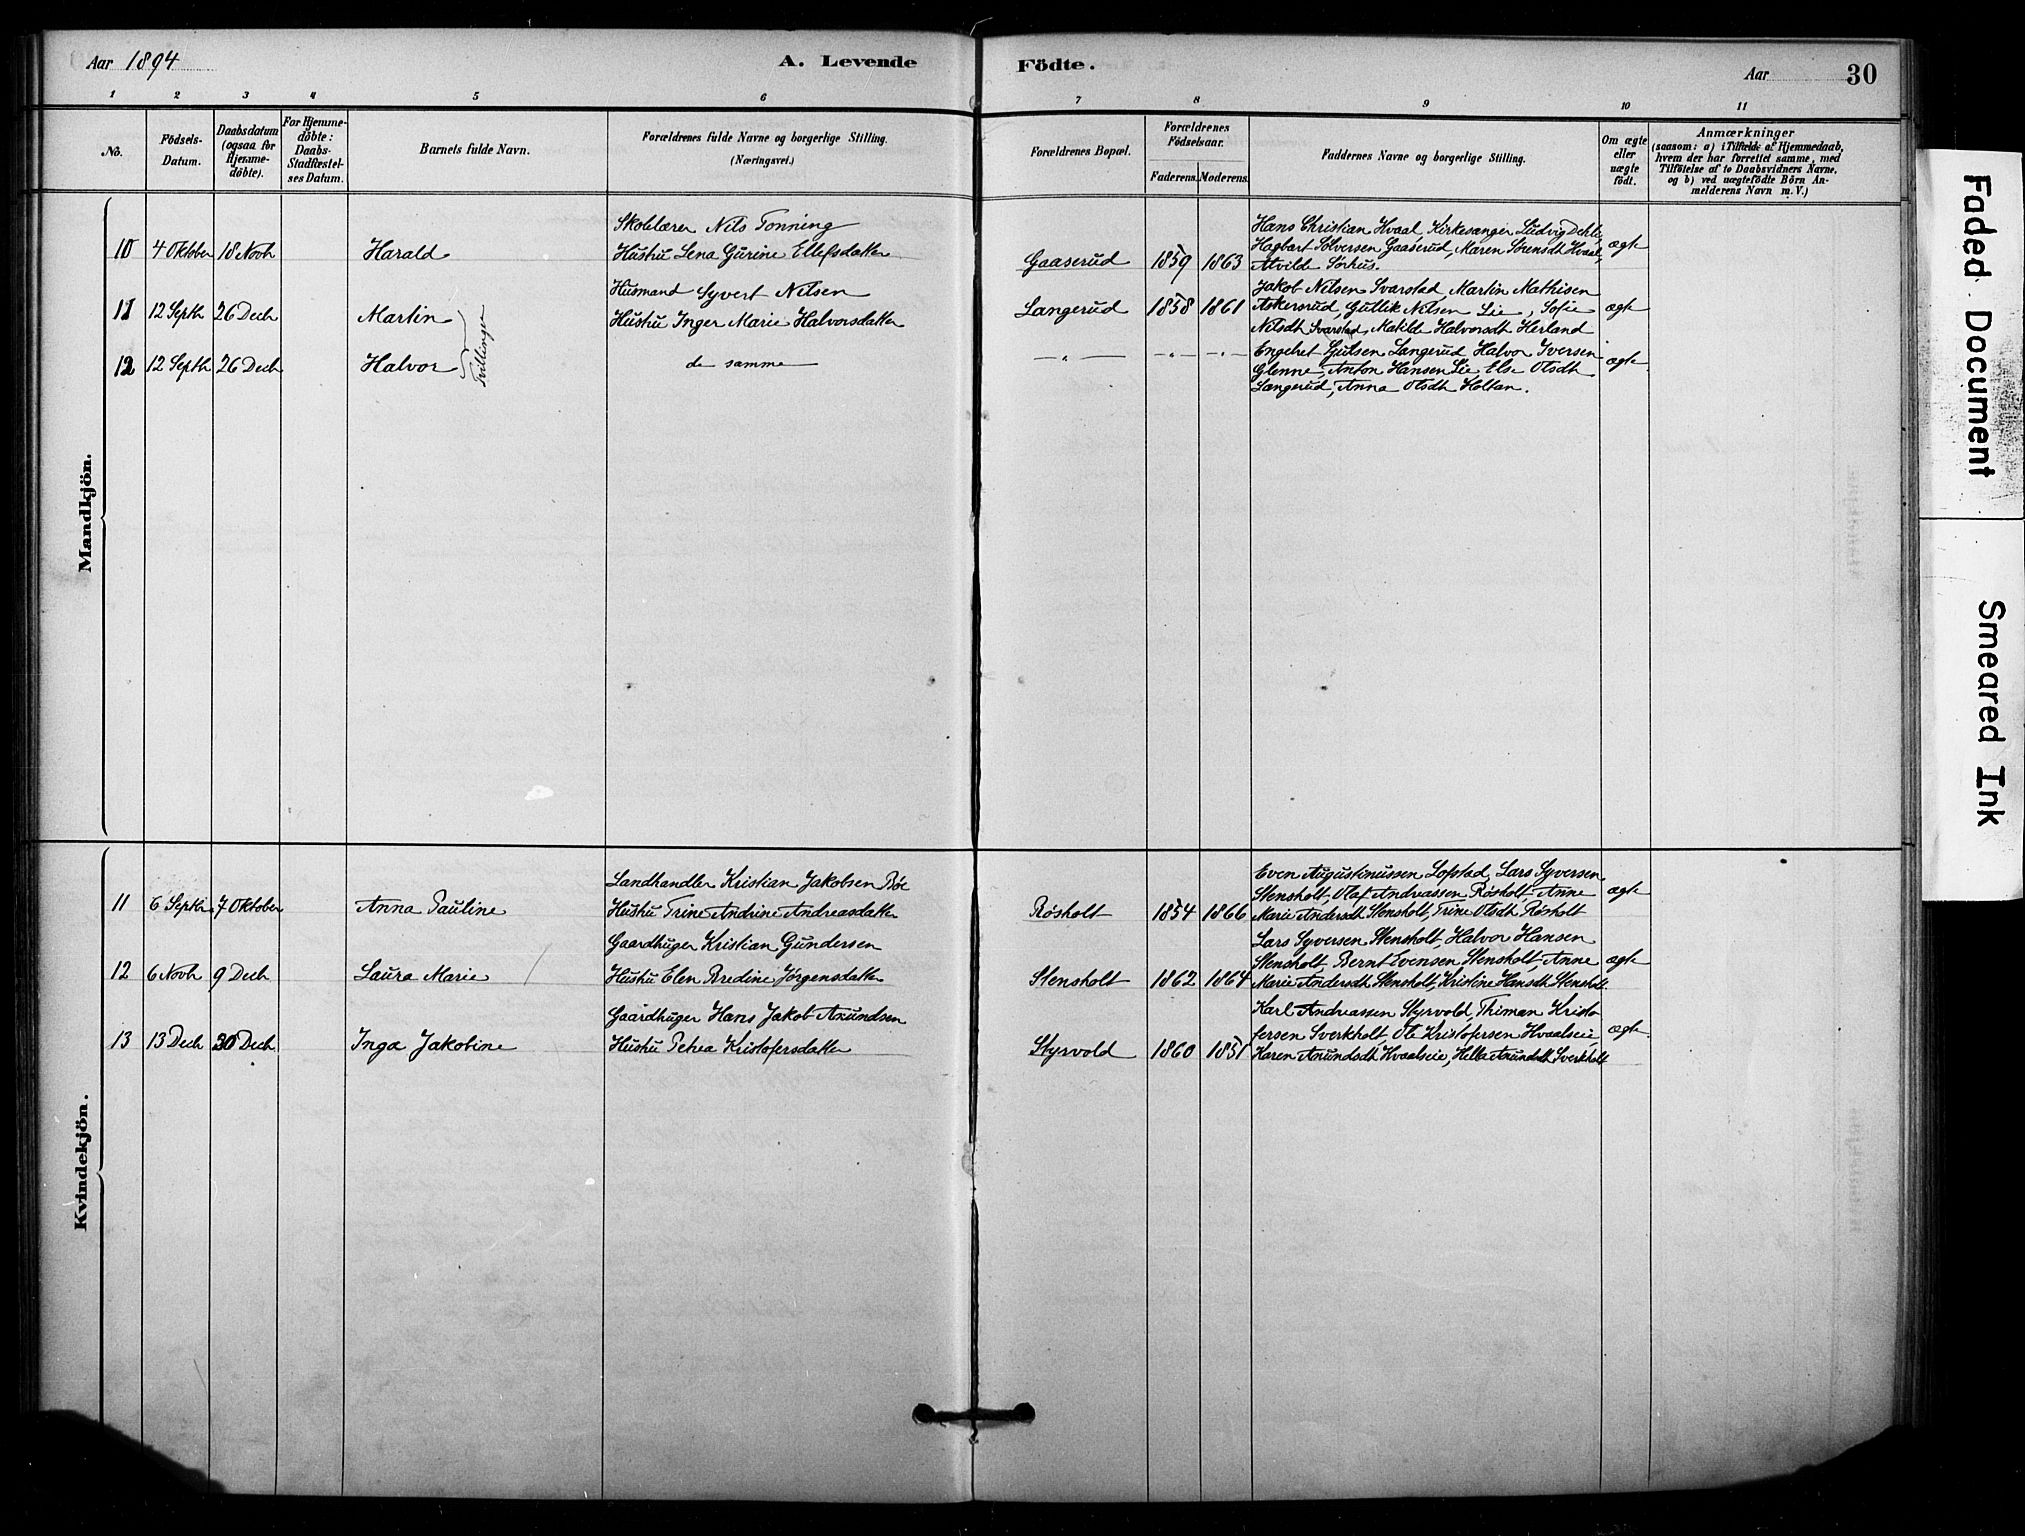 Aar 1894
A. Levende
Födte.
Aar
30
1 2 3 4 5 6 7 8 9 10 11
No.
Födsels-
Datum.
Daabsdatum
(ogsaa for
Hjemme-
döbte).
For Hjemme-
döbte:
Daabs-
Stadfæstel-
ses Datum.
Barnets fulde Navn.
Forældrenes fulde Navne og borgerlige Stilling.
(Næringsvei.)
Forældrenes Bopæl.
Forældrenes
Födselsaar.
Faderens. Moderens.
Faddernes Navne og borgerlige Stilling.
Om ægte
eller
uægte
födt.
Anmærkninger
(saasom: a) i Tilfælde af Hjemmedaab,
hvem der har forrettet samme, med
Tilföielse af to Daabsvidners Navne,
og b) ved uægtefödte Börn An-
melderens Navn m. V.)
Mandkjön.
Skolelærer Nils Tonning
10 4 Oktober 18 Novb Harald Hustru Lena Gurine Ellefsdatter
Gaaserud 1859 1863
Hans Christian Hvaal, Kirkesanger Ludvig Dehli,
Hagbart Solversen Gaaserud, Maren Svensdt Hvaal,
Alvilde Sørhus.
ægte
Husmand Syvert Nilsen
11 12 Septb 26 Decb Martin Hustru Inger Marie Halvorsdatter
Tvillinger
Langerud 1858 1861
Jakob Nilsen Svarstad, Martin Mathisen
Askersrud, Gullik Nilsen Lie, Sofie
Nilsdt Svarstad, Matilde Halvorsdt Herland
ægte
12 12 Septb 26 Decb Halvor de samme
— " — — " — — " —
Engebret Hjulsen Langerud, Halvor Iversen
Glenne, Anton Hansen Lie, Else Olsdt
Langerud, Anna Olsdt Holtan.
ægte
Kvindekjön.
Landhandler Kristian Jakobsen Bøe
11 6 Septbr 7 Oktober Anna Pauline Hustru Trine Andrine Andreasdatter
Røsholt 1854 1866
Even Augustinussen Lofstad, Lars Syversen
Stensholt, Olaf Andreassen Røsholt, Anne
Marie Andersdt Stensholt, Trine Olsdt Røsholt
ægte
Gaardbruger Kristian Gundersen
12 6 Novb 9 Decb Laura Marie Hustru Elen Bredine Jørgensdatter
Stensholt 1862 1864
Lars Syversen Stensholt, Halvor Hansen
Stensholt, Bernt Evensen Stensholt, Anne
Marie Andersdt Stensholt, Kristine Hansdt Stensholt.
ægte
Gaardbruger Hans Jakob Anundsen
13 13 Decb 30 Decb Inga Jakobine Hustru Petrea Kristofersdatter
Styrvold 1860 1851
Karl Andreassen Styrvold, Thiman Kristo
fersen Sverkholt, Ole Kristofersen Hvaalseie,
Karen Anundsdt Hvaalseie, Helle Anundsdt Sverkholt
ægte
Faded Document
Smeared Ink